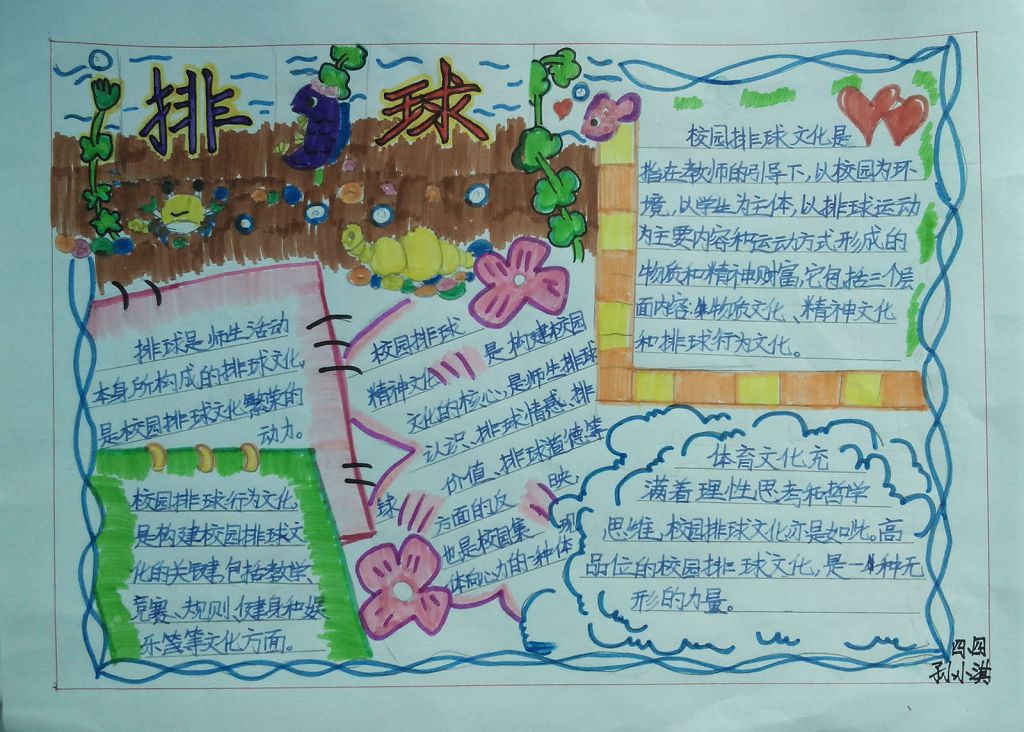 排球
校园排球文化是
指在教师的引导下,以校园为环
境,以学生为主体,以排球运动
为主要内容和运动方式形成的
物质和精神财富,它包括三个层
面内容:物质文化、精神文化
和排球行为文化。
排球是师生活动
本身所构成的排球文化,
是校园排球文化繁荣的
动力。
校园排球行为文化,
是构建校园排球文
化的关键,包括教学、
竞赛、规则、健身和娱
乐等等文化方面。
校园排球
精神文化 是构建校园
文化的核心,是师生排球
认识、排球情感、排
球 价值、排球道德等
方面的反映,
也是校园集 体向心力的一种体
现
体育文化充
满着理性思考和哲学
思维,校园排球文化亦是如此。高
品位的校园排球文化,是一种无
形的力量。
四四
孙小淇